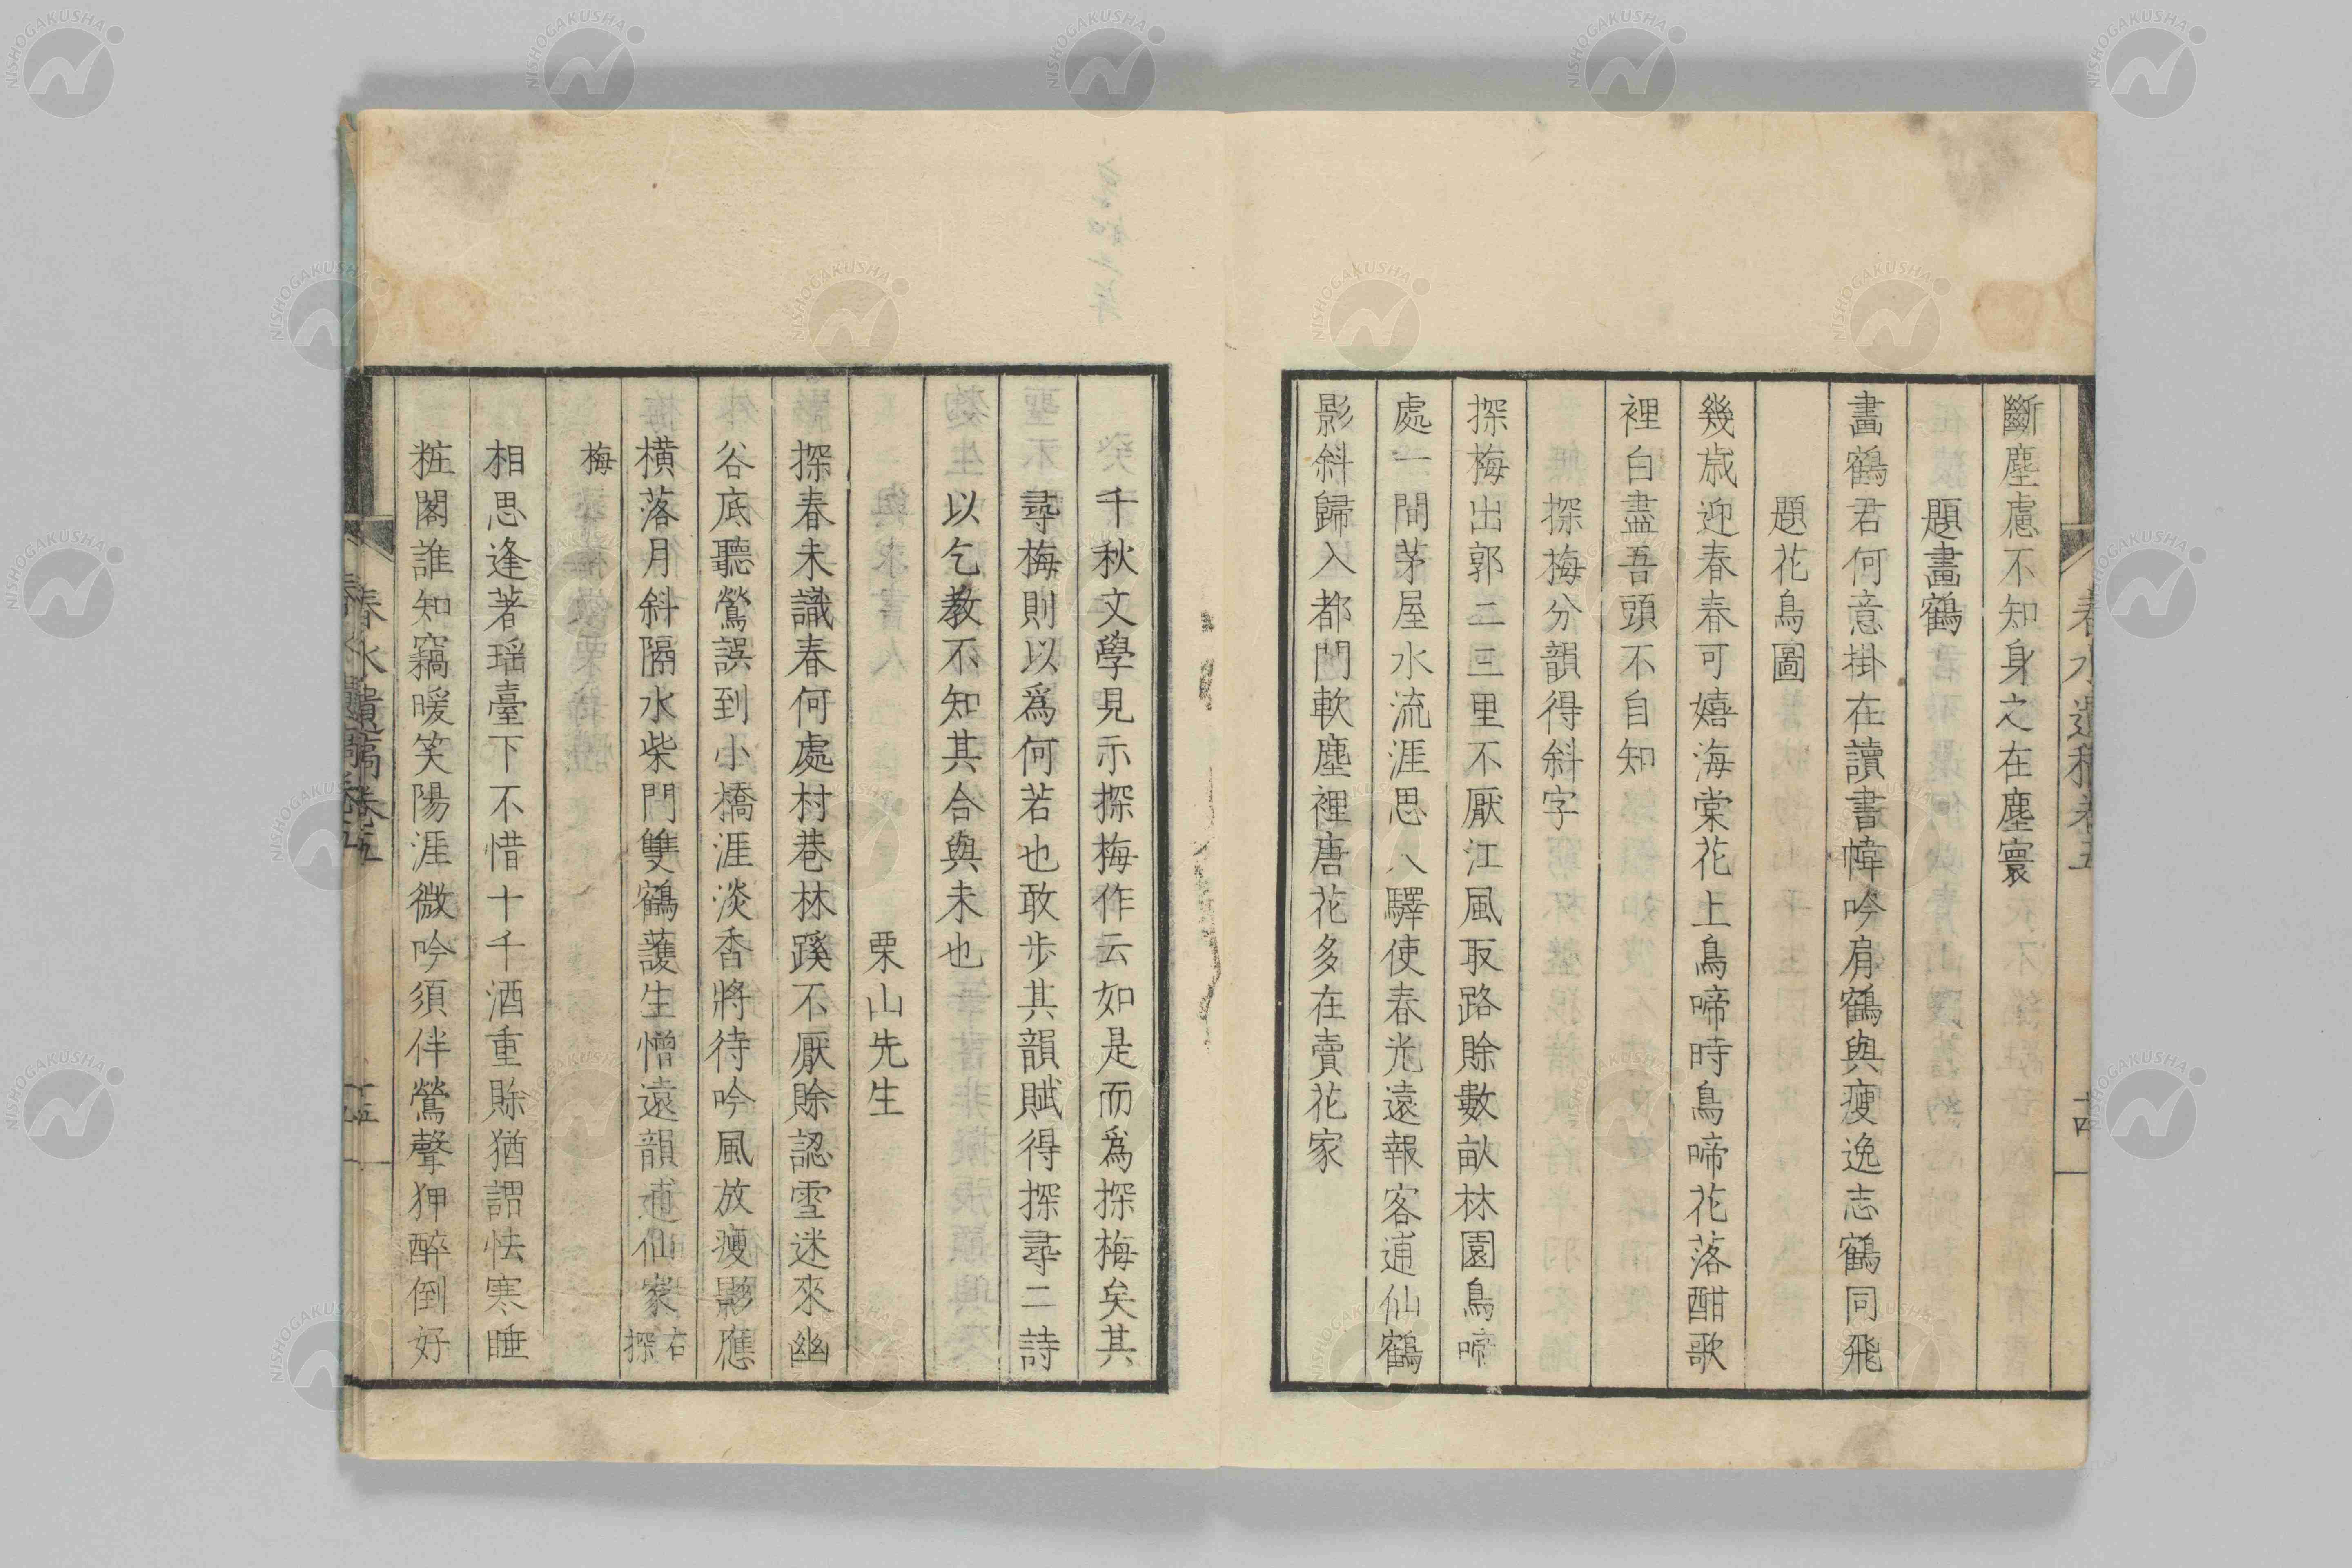 春水遺稿卷五
十四
斷塵慮不知身之在塵寰
題畫鶴
畫鶴君何意掛在讀書幃吟肩鶴與瘦逸志鶴同飛
題花鳥圖
幾歲迎春春可嬉海棠花上鳥啼時鳥啼花落酣歌
裡白盡吾頭不自知
探梅分韻得斜字
探梅出郭二三里不厭江風取路賒數畝林園鳥啼
處一間茅屋水流涯思入驛使春光遠報客逋仙鶴
影斜歸入都門軟塵裡唐花多在賣花家
千秋文學見示探梅作云如是而爲探梅矣其
尋梅則以爲何若也敢步其韻賦得探尋二詩
以乞教不知其合與未也
栗山先生
探春未識春何處村巷林蹊不厭賒認雪迷來幽
谷底聽鶯誤到小橋涯淡香將待吟風放瘦影應
橫落月斜隔水柴門雙鶴護生憎遠韻逋仙家右探
梅
相思逢著瑶臺下不惜十千酒重賒猶詔怯寒睡
粧閣誰知竊暖笑陽涯微吟須伴鶯聲狎醉倒好
春水遺稿卷五
十五
NISHOGAKUSHA